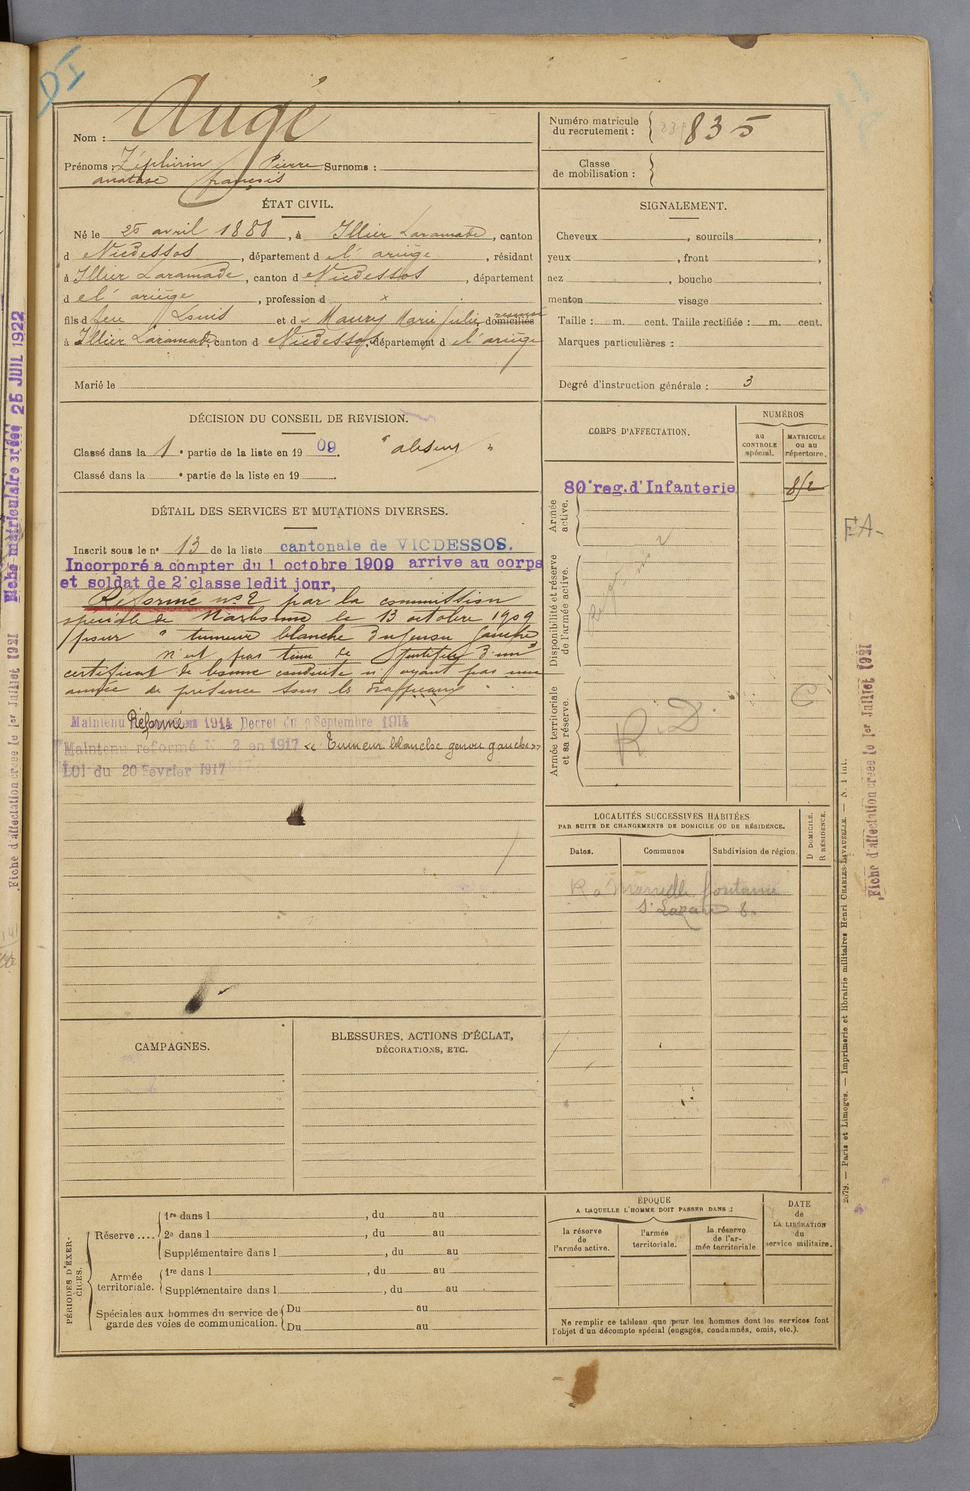 DI
Nom : Augé
Prénoms : Zéphirin Pierre Surnoms :
anatase françois
Numéro matricule
du recrutement : 835
Classe
de mobilisation :
ÉTAT CIVIL.
Né le 25 avril 1888, à Illier Laramade, canton
d Vicdessos, département d el' ariège, résidant
à Illier Laramade, canton d Vicdessos, département
d el' ariège, profession d x
fils d feu Louis et d Maury Marie Julie, domiciliés
à Illier Laramade, canton d Vicdessos, département d el' ariège
Marié le
SIGNALEMENT.
Cheveux , sourcils ,
yeux , front ,
nez , bouche
menton visage
Taille : m. cent. Taille rectifiée : m. cent.
Marques particulières :
Degré d'instruction générale : 3
DÉCISION DU CONSEIL DE REVISION.
Classé dans la 1e partie de la liste en 1909. "absent"
Classé dans la e partie de la liste en 19 .
DÉTAIL DES SERVICES ET MUTATIONS DIVERSES.
Inscrit sous le n° 13 de la liste cantonale de VICDESSOS.
Incorporé a compter du 1 octobre 1909 arrive au corps
et soldat de 2e classe ledit jour,
Réformé n° 2 par la commission
spéciale de Narbonne le 13 octobre 1909
pour " tumeur blanche du genou gauche
n'est pas tenu de justifier d'un
certificat de bonne conduite n'ayant pas une
année de présence sous les drapeaux
Maintenu Réformé en 1914 Decret du 9 Septembre 1914
Maintenu reformé N° 2 en 1917 « Tumeur blanche genou gauche »
Loi du 20 Fevrier 1917
CORPS D'AFFECTATION.
NUMÉROS
au
CONTROLE
spécial.
MATRICULE
ou au
répertoire.
Armée
active.
80e reg. d'Infanterie
Disponibilité et réserve
de l'armée active.
Armée territoriale
et sa réserve.
R. D.
LOCALITÉS SUCCESSIVES HABITÉES
PAR SUITE DE CHANGEMENTS DE DOMICILE OU DE RÉSIDENCE.
Dates.
Communes
Subdivision de région.
D DOMICILE.
R RÉSIDENCE.
R a Marseille
St Lazare 6.
CAMPAGNES.
BLESSURES, ACTIONS D'ÉCLAT,
DÉCORATIONS, ETC.
PÉRIODES D'EXER-
CICES.
Réserve ....
1re dans l , du au
2e dans l , du au
Supplémentaire dans l , du au
Armée
territoriale.
1re dans l , du au
Supplémentaire dans l , du au
Spéciales aux hommes du service de
garde des voies de communication.
Du au
Du au
ÉPOQUE
A LAQUELLE L'HOMME DOIT PASSER DANS :
la réserve
de
l'armée active.
l'armée
territoriale.
la réserve
de l'ar-
mée territoriale
DATE
de
LA LIBÉRATION
du
service militaire.
Ne remplir ce tableau que pour les hommes dont les services font
l'objet d'un décompte spécial (engagés, condamnés, omis, etc.).
2079. — Paris et Limoges. — Imprimerie et librairie militaires Henri CHARLES-LAVAUZELLE. — N. 1 int.
FA-
Fiche d'affectation créée le 1er Juillet 1921
Fiche matriculaire créée 25 JUIL 1922
Fiche d'affectation créée le 1er Juillet 1921